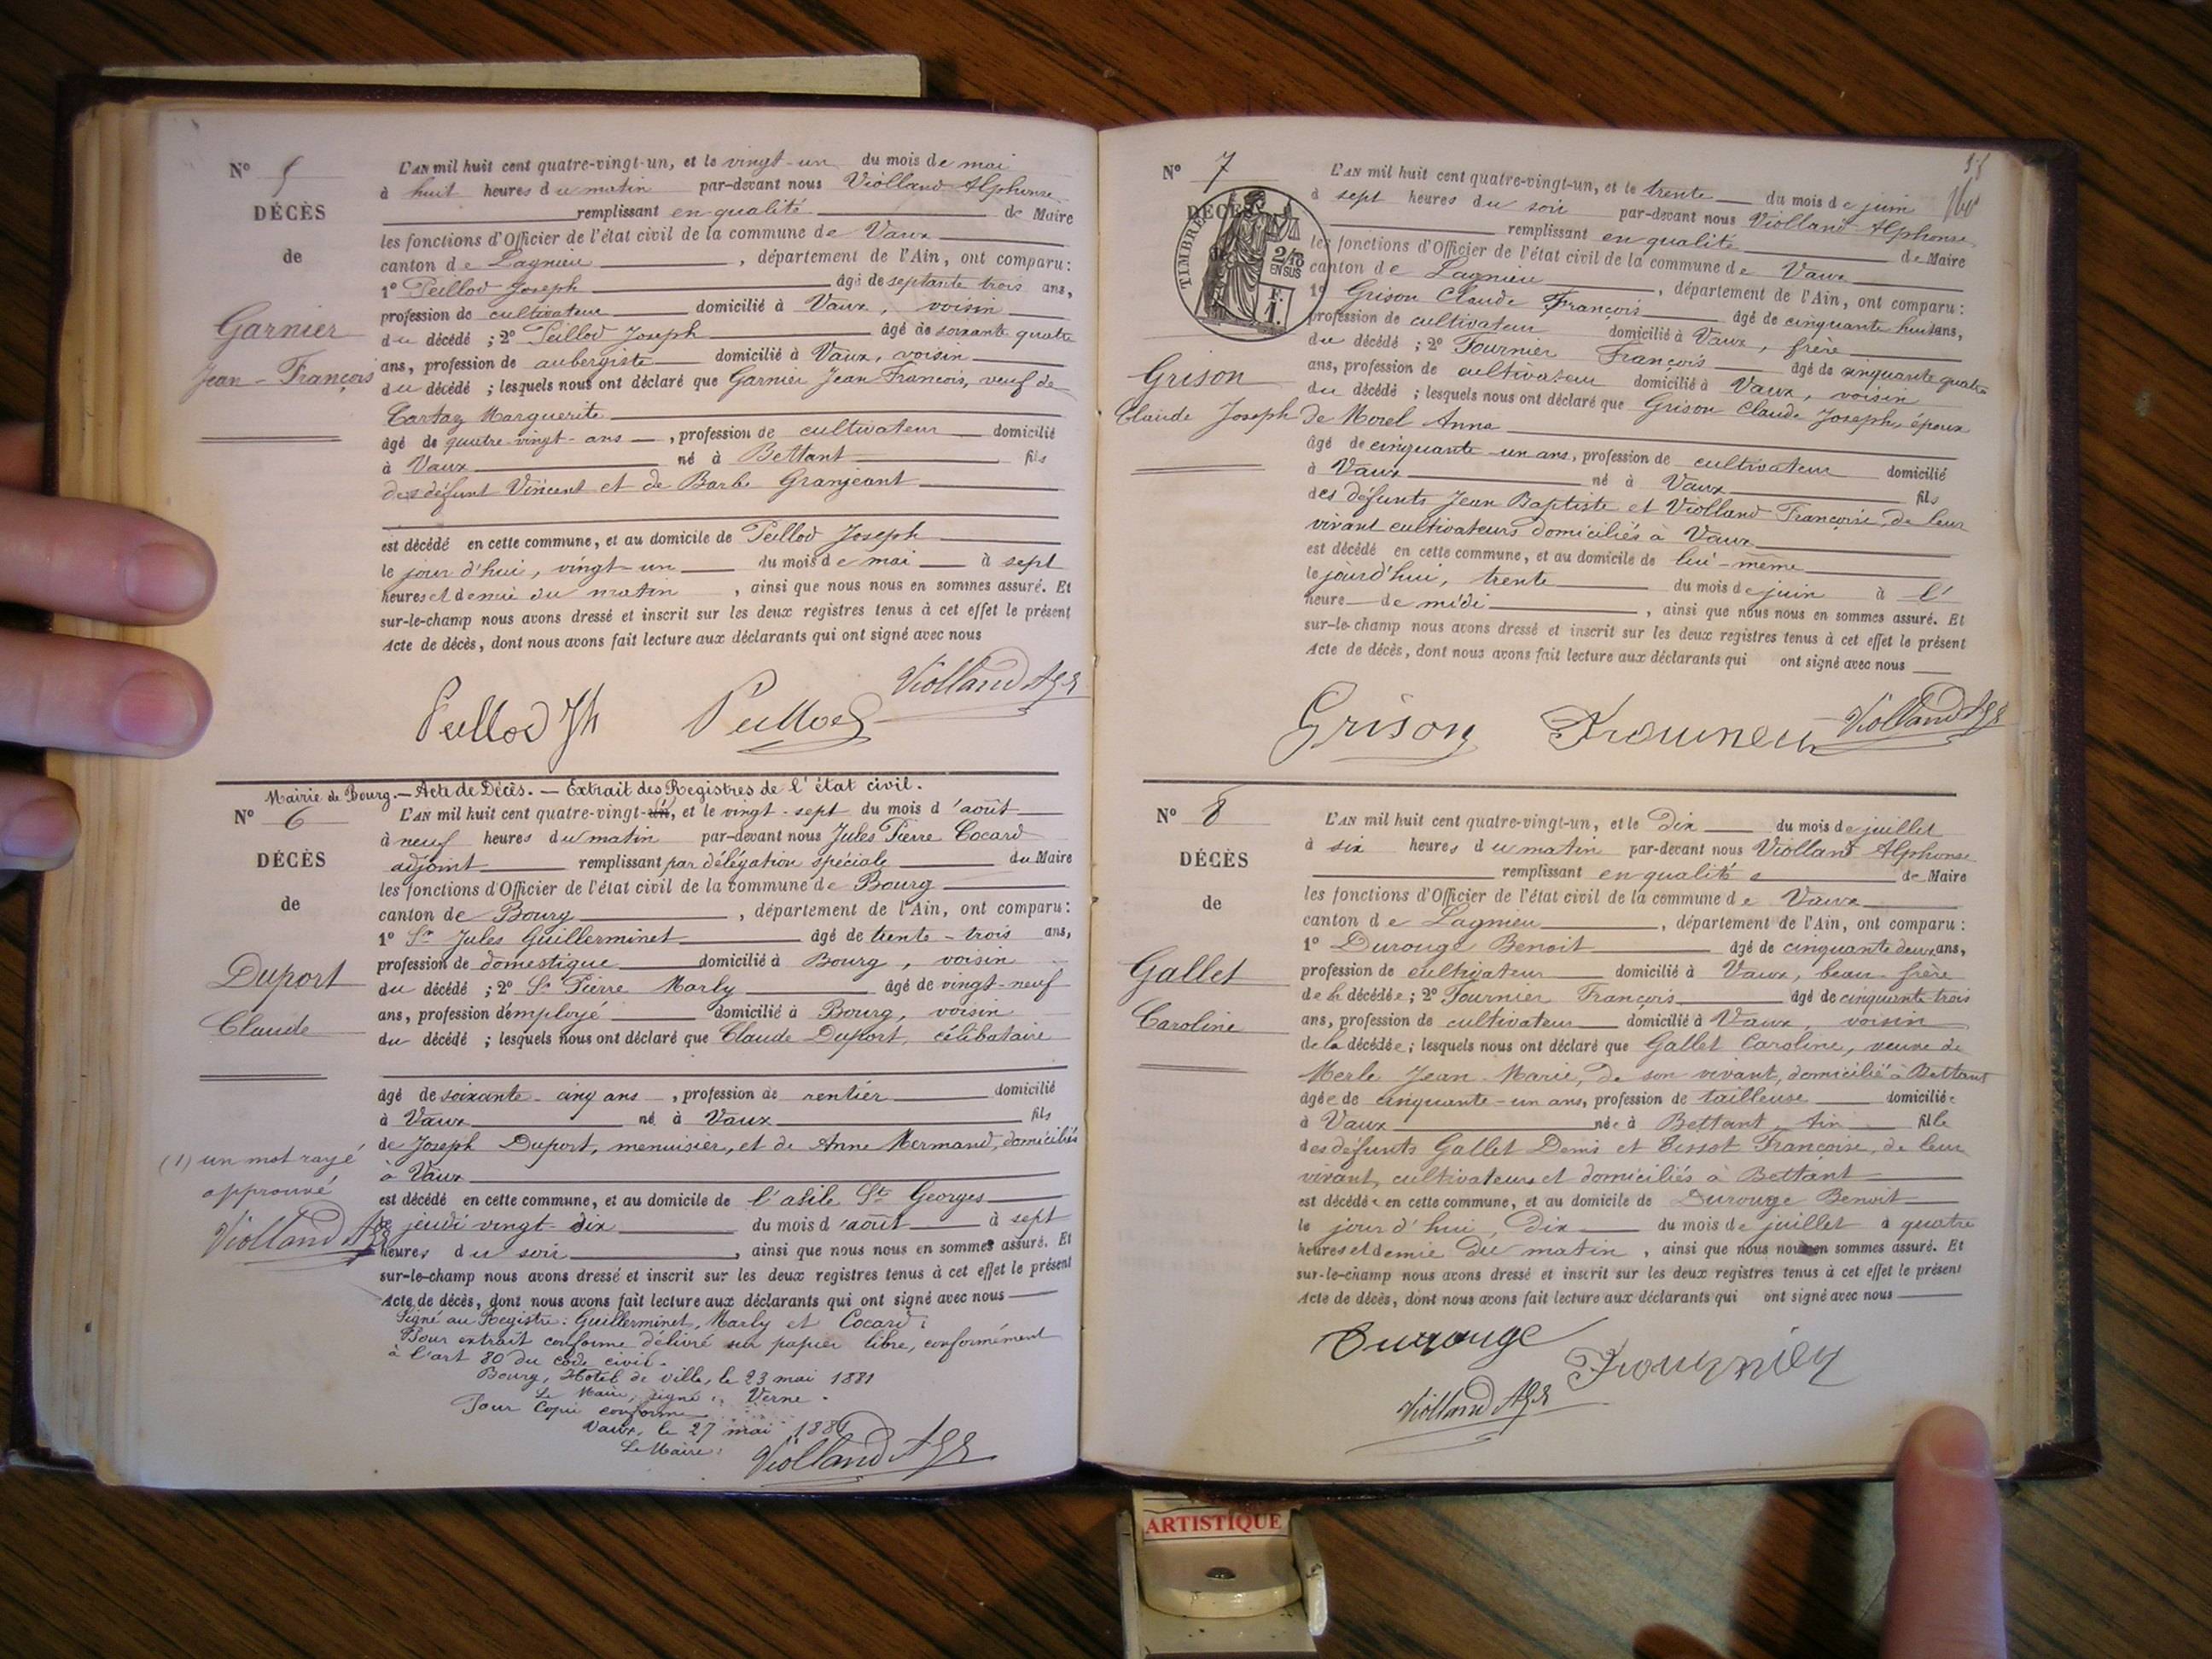 N° 5
DÉCÈS
de
Garnier
Jean-François
L'AN mil huit cent quatre-vingt-un, et le vingt-un du mois de mai
à huit heures du matin par-devant nous Violland Alphonse
remplissant en qualité de Maire
les fonctions d'Officier de l'état civil de la commune de Vaux
canton de Lagnieu, département de l'Ain, ont comparu:
1° Peillod Joseph âgé de septante trois ans,
profession de cultivateur domicilié à Vaux, voisin
du décédé; 2° Peillod Joseph âgé de soixante quatre
ans, profession de aubergiste domicilié à Vaux, voisin
du décédé; lesquels nous ont déclaré que Garnier Jean François, veuf de
Cartaz Marguerite
âgé de quatre-vingt-ans, profession de cultivateur domicilié
à Vaux né à Bettant fils
des défunt Vincent et de Barbe Granjeant
est décédé en cette commune, et au domicile de Peillod Joseph
le jour d'hui, vingt-un du mois de mai à sept
heures et demie du matin, ainsi que nous nous en sommes assuré. Et
sur-le-champ nous avons dressé et inscrit sur les deux registres tenus à cet effet le présent
Acte de décès, dont nous avons fait lecture aux déclarants qui ont signé avec nous
Peillod Jh Peillod Violland Ase
Mairie de Bourg.— Acte de Décès. — Extrait des Registres de l'état civil.
N° 6
DÉCÈS
de
Duport
Claude
(1) un mot rayé
approuvé
Violland Ase
L'AN mil huit cent quatre-vingt-un, et le vingt-sept du mois d'août
à neuf heures du matin par-devant nous Jules Pierre Cocard
adjoint remplissant par délégation spéciale du Maire
les fonctions d'Officier de l'état civil de la commune de Bourg
canton de Bourg, département de l'Ain, ont comparu:
1° Sr Jules Guillerminet âgé de trente-trois ans,
profession de domestique domicilié à Bourg, voisin
du décédé; 2° Sr Pierre Marly âgé de vingt-neuf
ans, profession d'employé domicilié à Bourg, voisin
du décédé; lesquels nous ont déclaré que Claude Duport, célibataire
âgé de soixante-cinq ans, profession de rentier domicilié
à Vaux né à Vaux fils
de Joseph Duport, menuisier, et de Anne Mermand, domiciliés
à Vaux
est décédé en cette commune, et au domicile de l'asile St Georges
le jeudi vingt-dix du mois d'août à sept
heures du soir, ainsi que nous nous en sommes assuré. Et
sur-le-champ nous avons dressé et inscrit sur les deux registres tenus à cet effet le présent
Acte de décès, dont nous avons fait lecture aux déclarants qui ont signé avec nous
Signé au Registre: Guillerminet, Marly et Cocard;
Pour extrait conforme délivré sur papier libre, conformément
à l'art 80 du code civil.
Bourg, Hotel de ville, le 23 mai 1881
Le Maire, signé: Verne.
Pour Copie conforme
Vaux, le 27 mai 1881
Le Maire:
Violland Ase
58
N° 7
DÉCÈS
de
TIMBRE
2/10
EN SUS
F.
1.
Grison
Claude Joseph
L'AN mil huit cent quatre-vingt-un, et le trente du mois de juin
à sept heures du soir par-devant nous Violland Alphonse
remplissant en qualité de Maire
les fonctions d'Officier de l'état civil de la commune de Vaux
canton de Lagnieu, département de l'Ain, ont comparu:
1° Grison Claude François âgé de cinquante huit ans,
profession de cultivateur domicilié à Vaux, frère
du décédé; 2° Fournier François âgé de cinquante quatre
ans, profession de cultivateur domicilié à Vaux, voisin
du décédé; lesquels nous ont déclaré que Grison Claude Joseph, époux
de Morel Anna
âgé de cinquante-un ans, profession de cultivateur domicilié
à Vaux né à Vaux fils
des défunts Jean Baptiste et Violland Françoise, de leur
vivant cultivateurs domiciliés à Vaux
est décédé en cette commune, et au domicile de lui-même
le jourd'hui, trente du mois de juin à l'
heure de midi, ainsi que nous nous en sommes assuré. Et
sur-le-champ nous avons dressé et inscrit sur les deux registres tenus à cet effet le présent
Acte de décès, dont nous avons fait lecture aux déclarants qui ont signé avec nous
Grison Fournier Violland Ase
N° 8
DÉCÈS
de
Gallet
Caroline
L'AN mil huit cent quatre-vingt-un, et le dix du mois de juillet
à six heures du matin par-devant nous Violland Alphonse
remplissant en qualité de Maire
les fonctions d'Officier de l'état civil de la commune de Vaux
canton de Lagnieu, département de l'Ain, ont comparu:
1° Durouge Benoit âgé de cinquante deux ans,
profession de cultivateur domicilié à Vaux, beau-frère
de la décédée; 2° Fournier François âgé de cinquante-trois
ans, profession de cultivateur domicilié à Vaux, voisin
de la décédée; lesquels nous ont déclaré que Gallet Caroline, veuve de
Merle Jean-Marie, de son vivant, domicilié à Bettant
âgée de cinquante-un ans, profession de tailleuse domiciliée
à Vaux née à Bettant, Ain fille
des défunts Gallet Denis et Tissot Françoise, de leur
vivant, cultivateurs et domiciliés à Bettant
est décédée en cette commune, et au domicile de Durouge Benoit
le jour d'hui, dix du mois de juillet à quatre
heures et demie du matin, ainsi que nous nous en sommes assuré. Et
sur-le-champ nous avons dressé et inscrit sur les deux registres tenus à cet effet le présent
Acte de décès, dont nous avons fait lecture aux déclarants qui ont signé avec nous
Durouge
Fournier
Violland Ase
ARTISTIQUE